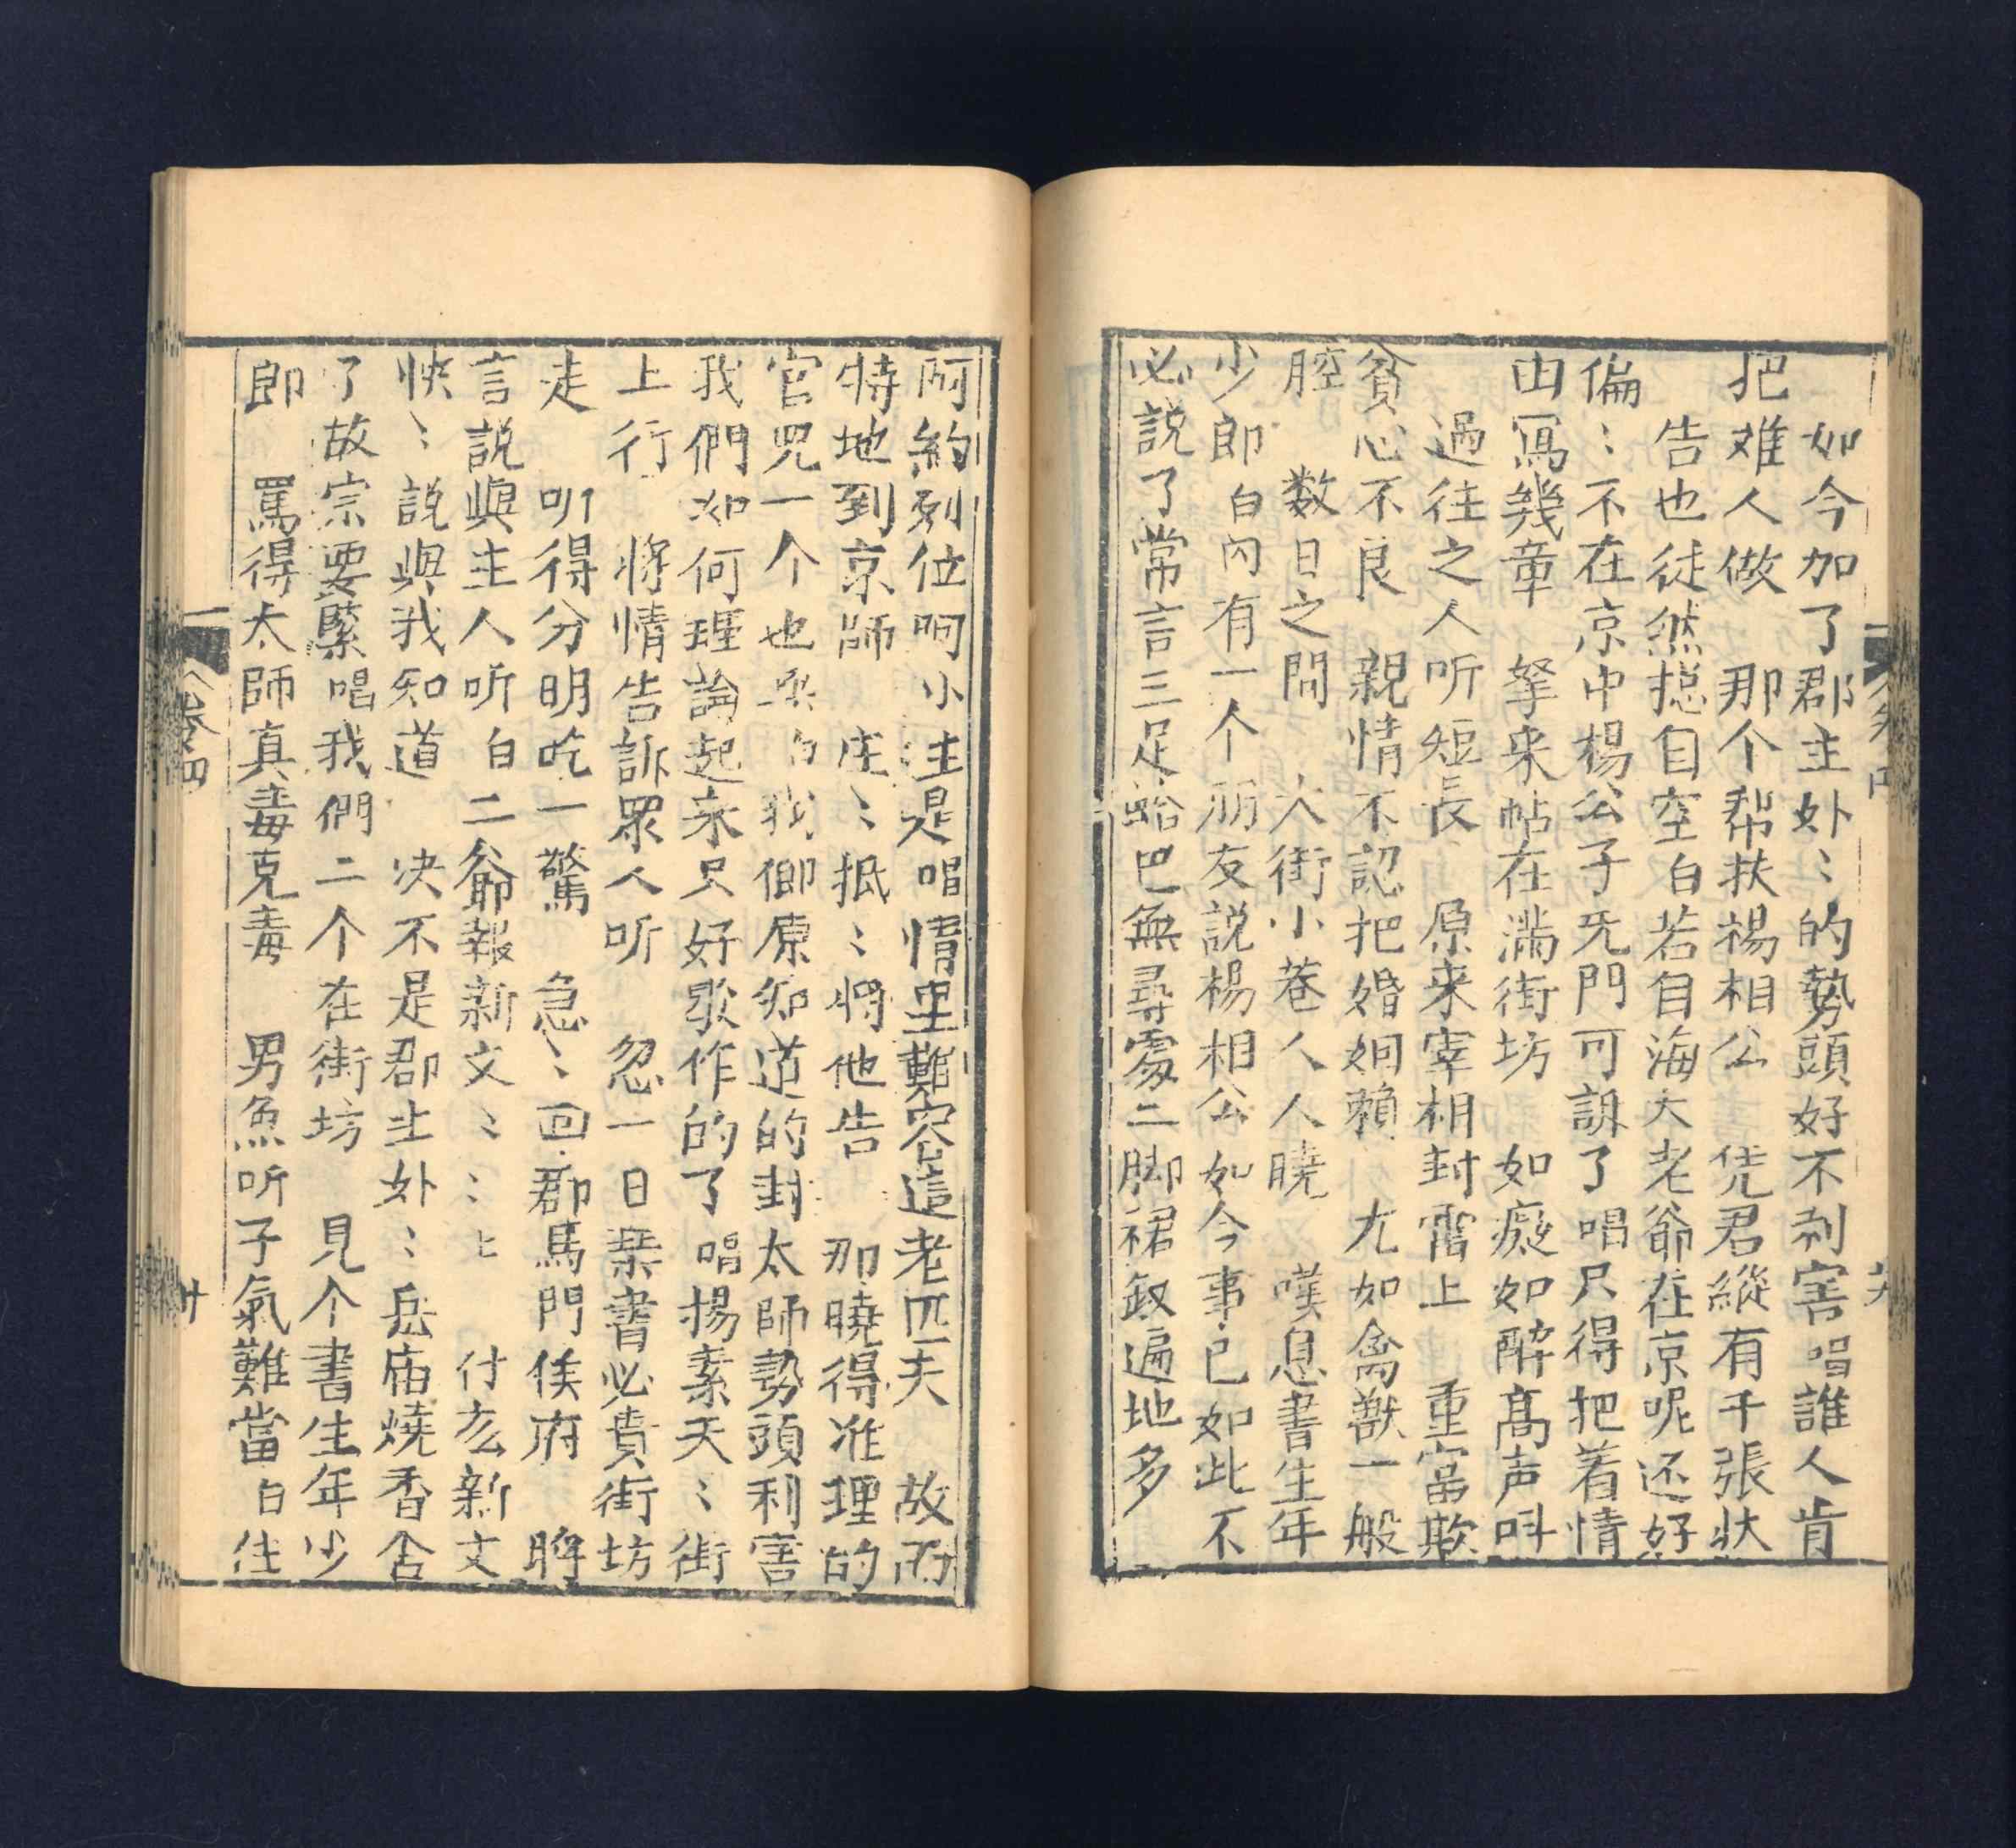 如今加了郡主处〻的勢頭好不利害唱誰人肯
把难人做　那个帮扶楊相公　凭君縱有千張狀
告也徒然揔自空白若自海大老爺在京呢还好
偏〻不在京中楊公子旡門可訴了唱只得把着情
由冩幾章　拏来帖在满街坊　如癡如醉髙声呌
過往之人听短長　原来宰相封雷上　重富欺
貧心不良　親情不認把婚姻賴　尤如禽獣一般
腔　数日之間　大街小巷人人曉　嘆息書生年
少郎白内有一个朋友説楊相公如今事已如此不
必説了常言三足蛤巴無尋處二脚裙釵遍地多
卷四
阿約列位呵小生是唱情里難容這老匹夫　故而
特地到京師　庄〻抵〻將他告　那曉得准理的
官児一个也無白我仰原知道的封太師勢頭利害
我們如何理論起来只好歌作的了唱揚素天〻街
上行　将情告訴眾人听　忽一日琹書必貴街坊
走　听得分明吃一驚　急〻回郡馬門侯府　睁
言説與主人听白二爺報新文〻〻上　什么新文
快〻説與我知道　决不是郡主处〻岳庙燒香舍
了故宗要緊唱我們二个在街坊　見个書生年少
郎　罵得太師真毒克毒　男魚听子氣難當白住
卷四
廿